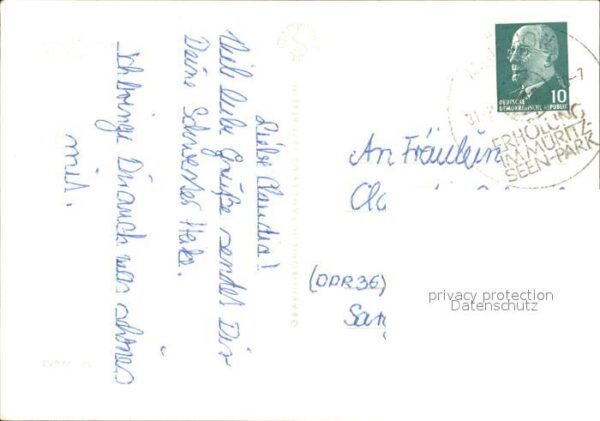 Liebe Claudia!
Viele liebe Grüße sendet Dir
Deine Schwester Heike.
Ich bringe Dir auch was schönes
mit.
DEUTSCHE
DEMOKRATISCHE REPUBLIK
10
ERHOLUNG
IM MÜRITZ-
SEEN-PARK
An Fräulein
Cla
(DDR 36)
San
privacy protection
Datenschutz